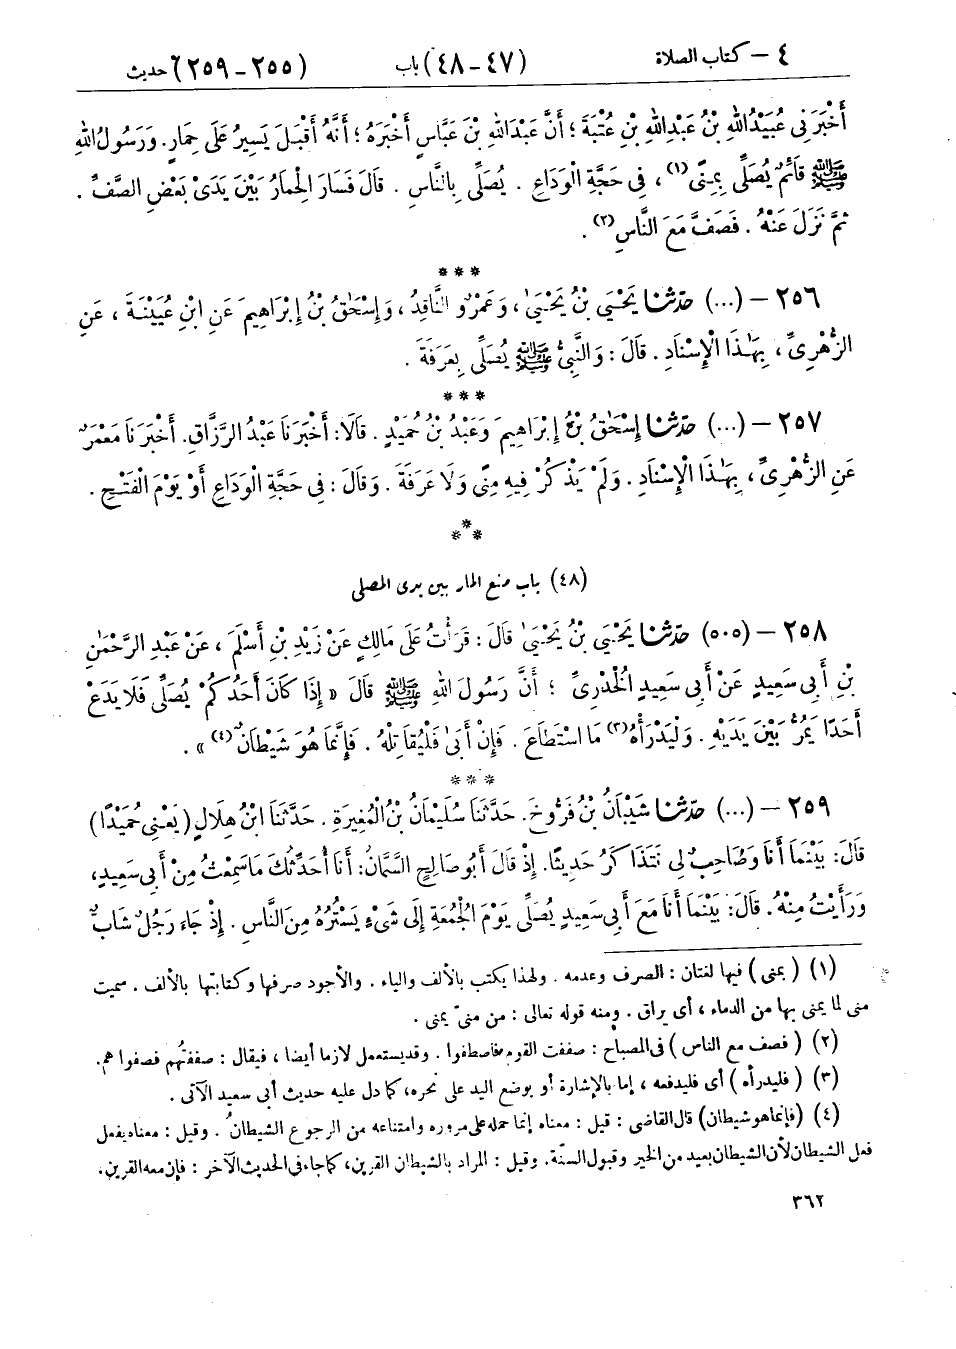 ٤ – كتاب الصلاة (٤٧ - ٤٨) باب (٢٥٥ - ٢٥٩) حديث
أَخْبَرَنِي عُبَيْدُ اللهِ بْنُ عَبْدِ اللهِ بْنِ عُتْبَةَ ؛ أَنَّ عَبْدَ اللهِ بْنَ عَبَّاسٍ أَخْبَرَهُ ؛ أَنَّهُ أَقْبَلَ يَسِيرُ عَلَى حِمَارٍ . وَرَسُولُ اللهِ
ﷺ قَائِمٌ يُصَلِّي بِمِنًى (١) ، فِي حَجَّةِ الْوَدَاعِ . يُصَلِّي بِالنَّاسِ . قَالَ فَسَارَ الْحِمَارُ بَيْنَ يَدَيْ بَعْضِ الصَّفِّ .
ثُمَّ نَزَلَ عَنْهُ . فَصَفَّ مَعَ النَّاسِ (٢) .
***
٢٥٦ – (...) حَدَّثَنَا يَحْيَى بْنُ يَحْيَىٰ ، وَعَمْرٌو النَّاقِدُ ، وَإِسْحَاقُ بْنُ إِبْرَاهِيمَ عَنِ ابْنِ عُيَيْنَةَ ، عَنِ
الزُّهْرِيِّ ، بِهَـٰذَا الْإِسْنَادِ . قَالَ : وَالنَّبِيُّ ﷺ يُصَلِّي بِعَرَفَةَ .
***
٢٥٧ – (...) حَدَّثَنَا إِسْحَاقُ بْنُ إِبْرَاهِيمَ وَعَبْدُ بْنُ حُمَيْدٍ . قَالَا : أَخْبَرَنَا عَبْدُ الرَّزَّاقِ . أَخْبَرَنَا مَعْمَرٌ
عَنِ الزُّهْرِيِّ ، بِهَـٰذَا الْإِسْنَادِ . وَلَمْ يَذْكُرْ فِيهِ مِنًى وَلَا عَرَفَةَ . وَقَالَ : فِي حَجَّةِ الْوَدَاعِ أَوْ يَوْمَ الْفَتْحِ .
***
(٤٨) باب منع المار بين يدى المصلى
٢٥٨ – (٥٠٥) حَدَّثَنَا يَحْيَى بْنُ يَحْيَىٰ قَالَ : قَرَأْتُ عَلَى مَالِكٍ عَنْ زَيْدِ بْنِ أَسْلَمَ ، عَنْ عَبْدِ الرَّحْمَـٰنِ
بْنِ أَبِي سَعِيدٍ عَنْ أَبِي سَعِيدٍ الْخُدْرِيِّ ؛ أَنَّ رَسُولَ اللهِ ﷺ قَالَ « إِذَا كَانَ أَحَدُكُمْ يُصَلِّي فَلَا يَدَعْ
أَحَدًا يَمُرُّ بَيْنَ يَدَيْهِ . وَلْيَدْرَأْهُ (٣) مَا اسْتَطَاعَ . فَإِنْ أَبَىٰ فَلْيُقَاتِلْهُ . فَإِنَّمَا هُوَ شَيْطَانٌ (٤) » .
***
٢٥٩ – (...) حَدَّثَنَا شَيْبَانُ بْنُ فَرُّوخَ . حَدَّثَنَا سُلَيْمَانُ بْنُ الْمُغِيرَةِ . حَدَّثَنَا ابْنُ هِلَالٍ (يَعْنِي حُمَيْدًا)
قَالَ : بَيْنَمَا أَنَا وَصَاحِبٌ لِي نَتَذَاكَرُ حَدِيثًا . إِذْ قَالَ أَبُو صَالِحٍ السَّمَّانُ : أَنَا أُحَدِّثُكَ مَا سَمِعْتُ مِنْ أَبِي سَعِيدٍ ،
وَرَأَيْتُ مِنْهُ . قَالَ : بَيْنَمَا أَنَا مَعَ أَبِي سَعِيدٍ يُصَلِّي يَوْمَ الْجُمُعَةِ إِلَى شَيْءٍ يَسْتُرُهُ مِنَ النَّاسِ . إِذْ جَاءَ رَجُلٌ شَابٌّ
(١) ( بمنى ) فيها لغتان : الصرف وعدمه . ولهذا يكتب بالألف والياء . والأجود صرفها وكتابتها بالألف . سميت
منى لما يمنى بها من الدماء ، أى يراق . ومنه قوله تعالى : من منىّ يمنى .
(٢) ( فصف مع الناس ) فى المصباح : صففت القوم فاصطفوا . وقد يستعمل لازما أيضا ، فيقال : صففتهم فصفوا هم .
(٣) ( فليدرأه ) أى فليدفعه ، إما بالإشارة أو بوضع اليد على نحره ، كما دل عليه حديث أبى سعيد الآتى .
(٤) (فإنما هو شيطان) قال القاضى : قيل : معناه إنما حمله على مروره وامتناعه من الرجوع الشيطانُ . وقيل : معناه يفعل
فعل الشيطان لأن الشيطان بعيد من الخير وقبول السنّة . وقيل : المراد بالشيطان القرين ، كما جاء فى الحديث الآخر : فإن معه القرين .
٣٦٢